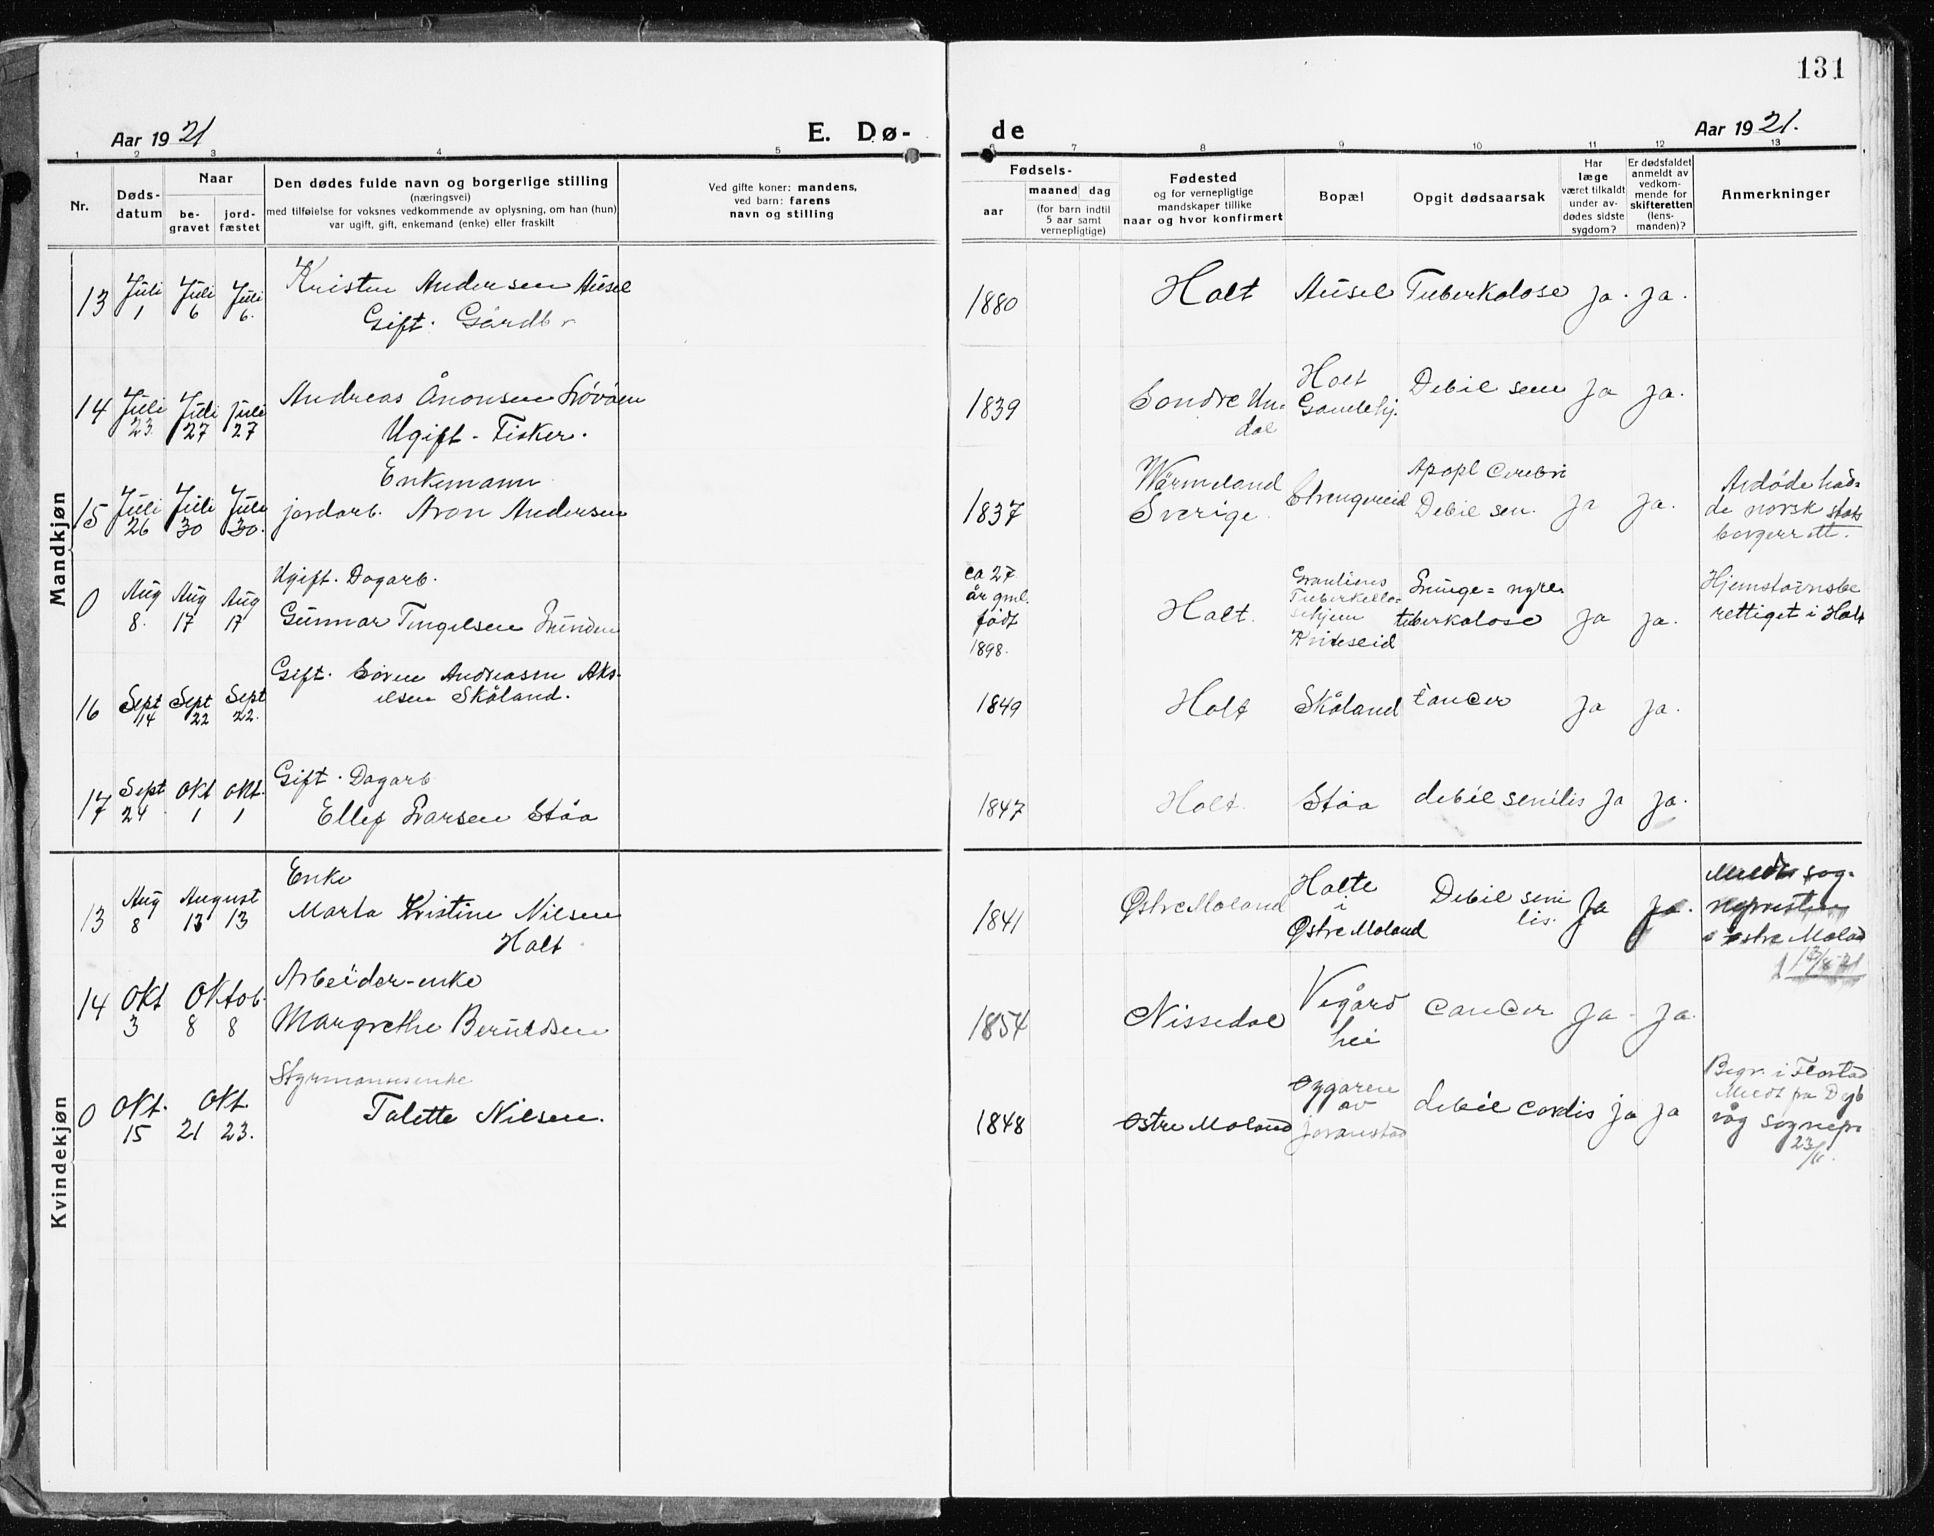 131
Aar 1921
E. Dø-
de
Aar 1921.
1 2 3 4 5 6 7 8 9 10 11 12 13
Nr.
Døds-
datum
Naar
be-
gravet
jord-
fæstet
Den dødes fulde navn og borgerlige stilling
(næringsvei)
med tilføielse for voksnes vedkommende av oplysning, om han (hun)
var ugift, gift, enkemand (enke) eller fraskilt
Ved gifte koner: mandens,
ved barn: farens
navn og stilling
Fødsels-
aar
maaned dag
(for barn indtil
5 aar samt
vernepligtige)
Fødested
og for vernepligtige
mandskaper tillike
naar og hvor konfirmert
Bopæl
Opgit dødsaarsak
Har
læge
været tilkaldt
under av-
dødes sidste
sygdom?
Er dødsfaldet
anmeldt av
vedkom-
mende for
skifteretten
(lens-
manden)?
Anmerkninger
Mandkjøn
13 Juli 1 Juli 6 Juli 6. Kristen Andersen Ausel
Gift. Gårdbr
1880 Holt Ausel Tuberkolose Ja. Ja.
14 Juli 23 Juli 27 Juli 27 Andreas Ånonsen
Ugift - Fisker.
1839 Søndre Un-
dal
Holt
Debil sen Ja Ja.
15 Juli 26 Juli 30 Juli 30. Enkemann
jordarb. Aron Andersen
1837 Wärmeland
Sverige.
Strengereid Apopl Cerebri
Debil sen. Ja Ja.
Avdøde had-
de norsk stats
borgerrett.
0 Aug 8. Aug 17 Aug 17 Ugift. Dagarb.
Gunnar Tengelsen Lunden
ca 27
år gml.
født
1898.
Holt.
Grautiens
Tuberkello-
sehjem
Kviteseid
Lunge = nyre
tuberkolose Ja Ja.
Hjemstavnsbe
rettiget i Holt
16 Sept 14 Sept 22 Sept 22. Gift. Søren Andreassen Aks-
elsen Skåland.
1849 Holt Skåland Cancer Ja Ja.
17 Sept 24 Okt 1 Okt. 1 Gift. Dagarb
Ellef Larsen Støa
1847 Holt. Støa debil senilis Ja Ja.
Kvindekjøn
13 Aug 8 August 13 13 Enke
Marta Kristine Nilsen
Holt
1841 Østre Moland Holte
i
Østre Moland
Debil seni
lis. Ja Ja.
Meldt sog-
nepresten
i Østre Moland
13/8-21
14 Okt 3 Oktob. 8 8 Arbeider-enke
Margrethe Beruldsen
1854 Nissedal Vegårds
hei
Cancer Ja - Ja.
0 Okt. 15 Okt. 21 23. Styrmannsenke
Talette Nilsen.
1848 Østre Moland
av
debil cordis ja ja
Begr. i Flostad
Meldt pa Dyb
våg sognepr
23/11.